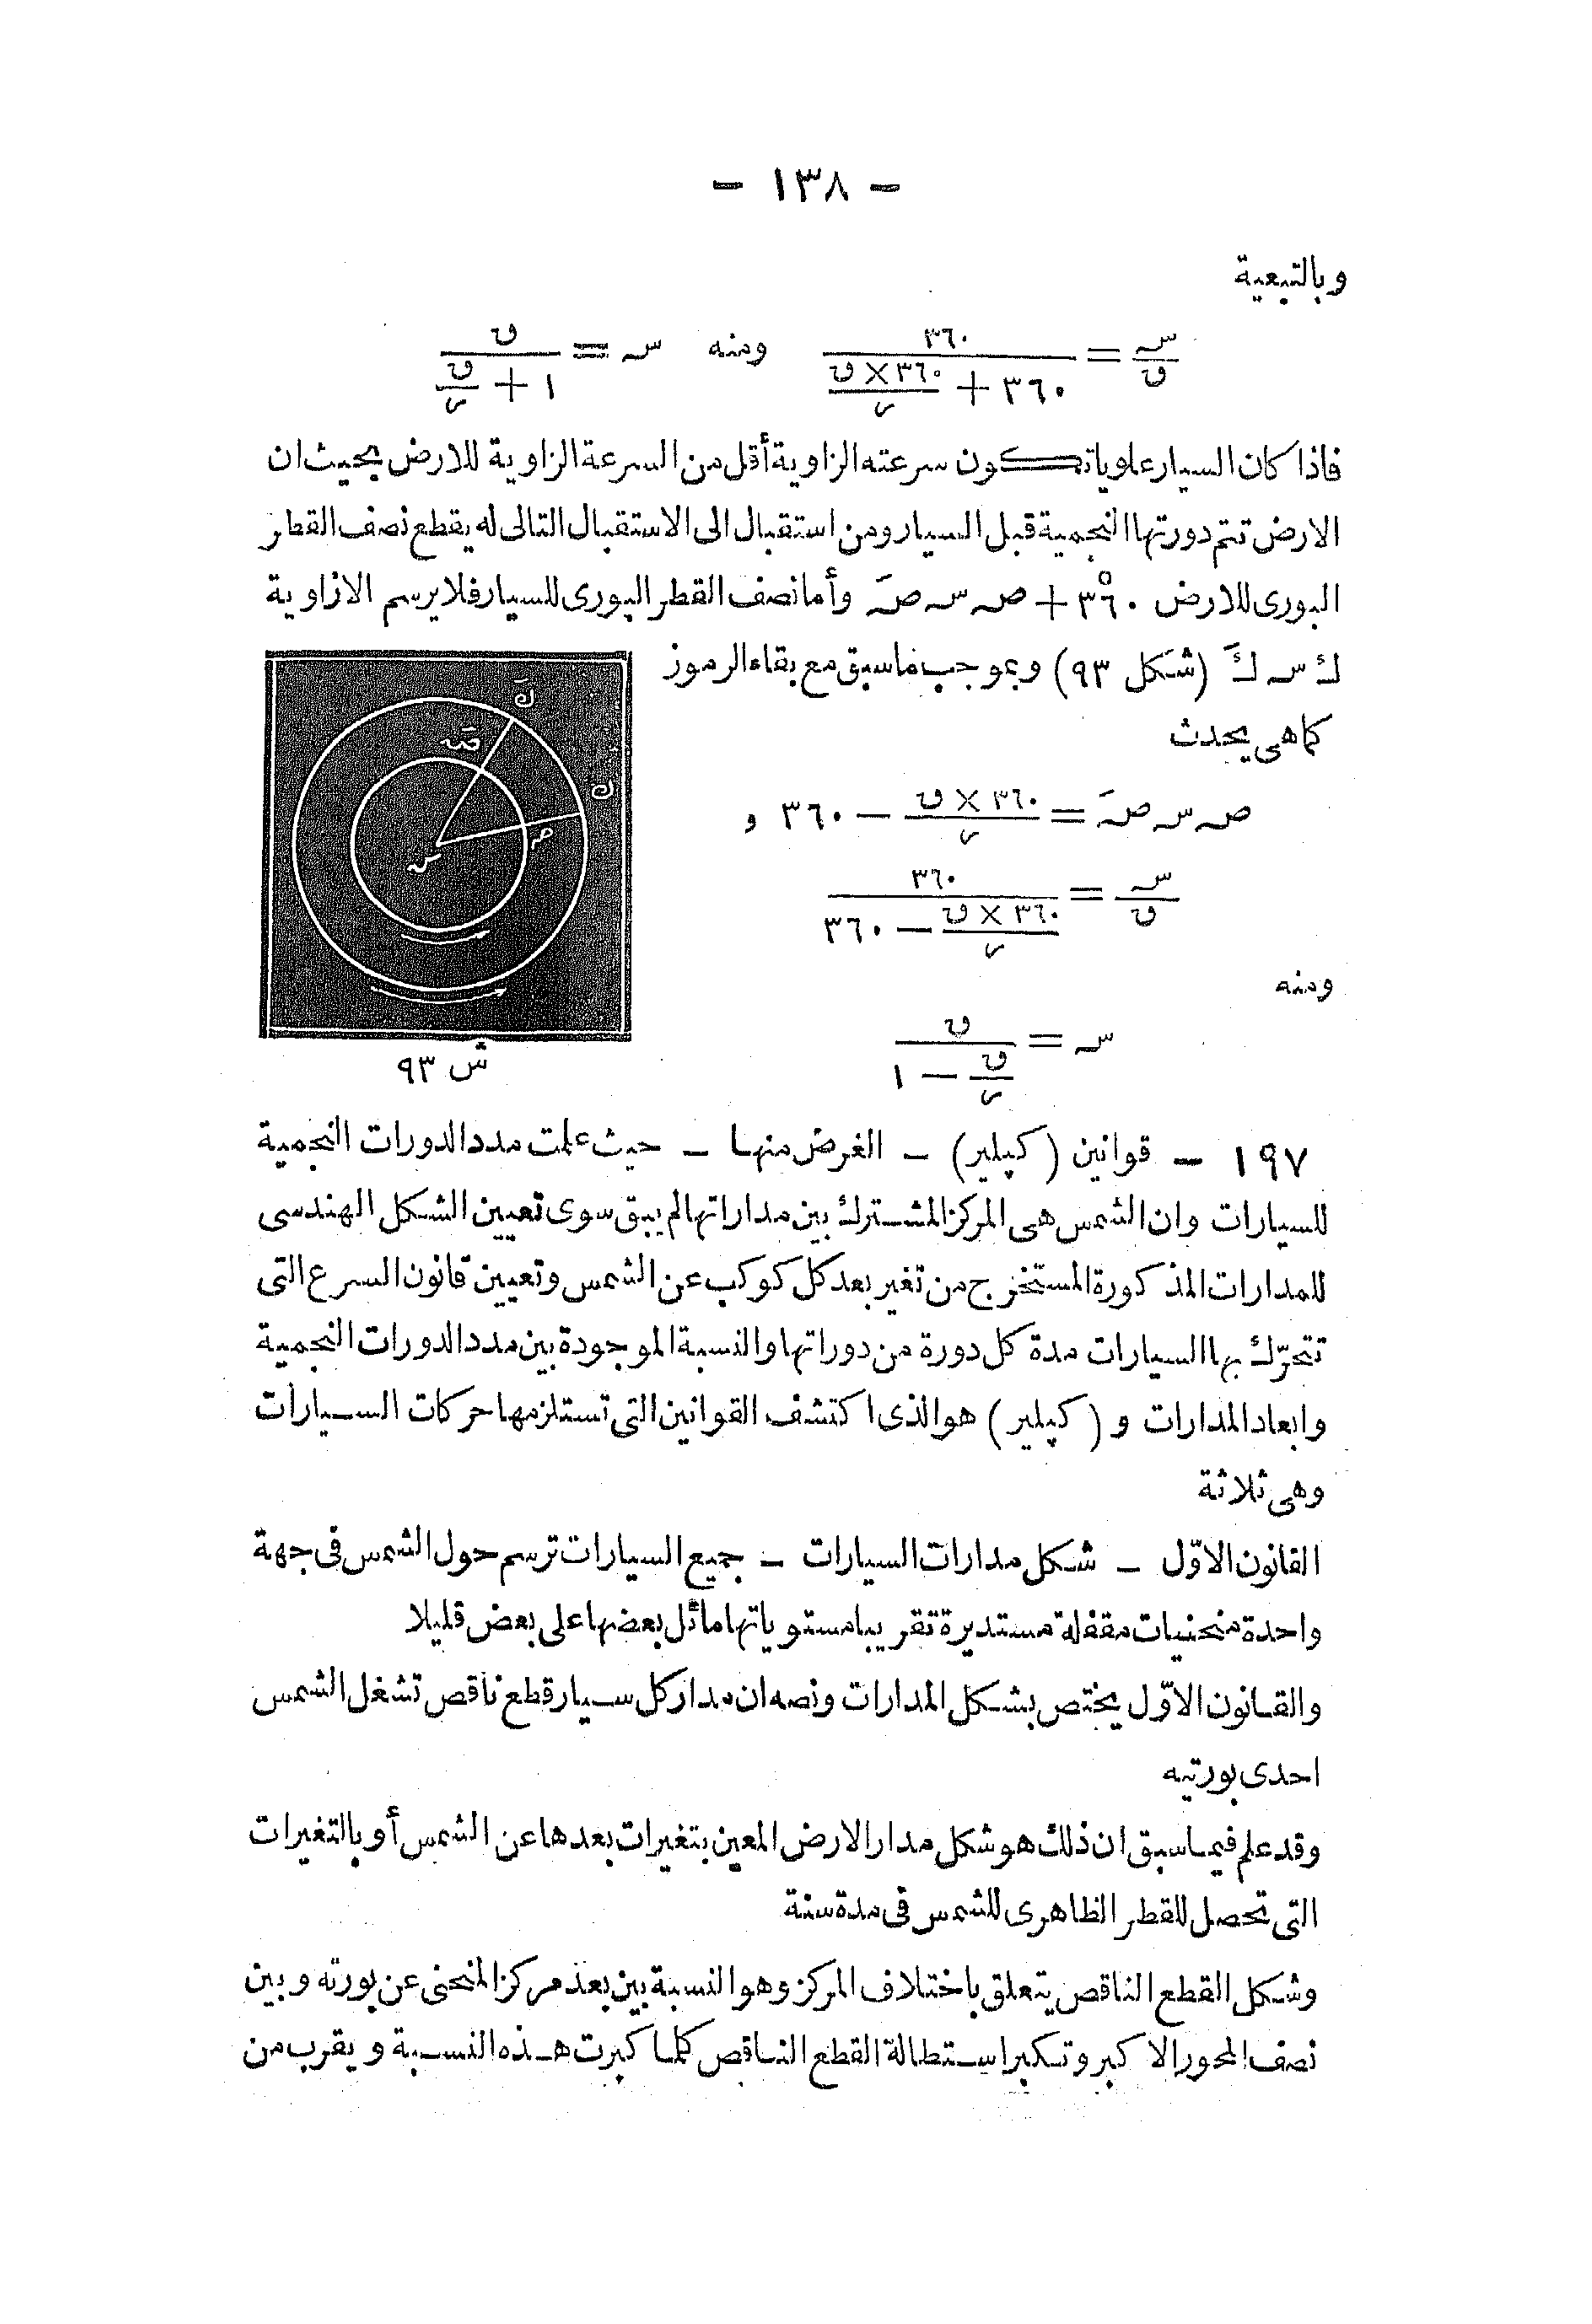 — ١٣٨ —
وبالتبعية
س/ں = ٣٦٠ / (٣٦٠ + (٣٦٠ × ں)/ر) ومنه س = ں / (١ + ں/ر)
فاذا كان السيار علويا تكون سرعته الزاوية أقل من السرعة الزاوية للارض بحيث ان
الارض تتم دورتها النجمية قبل السيار ومن استقبال الى الاستقبال التالى له يقطع نصف القطر
البورى للارض ٣٦٠° + صـ سـ صـَ وأما نصف القطر البورى للسيار فلا يرسم الا زاوية
ك سـ كَ (شكل ٩٣) وبموجب ما سبق مع بقاء الرموز
كما هى يحدث
صـ سـ صـَ = (٣٦٠ × ں)/ر — ٣٦٠ و
س/ں = ٣٦٠ / ((٣٦٠ × ں)/ر — ٣٦٠)
ومنه
س = ں / (ں/ر — ١)
كَ
صـَ
ك
صـ
سـ
ش ٩٣
١٩٧ — قوانين (كپلير) — الغرض منها — حيث علمت مدد الدورات النجمية
للسيارات وان الشمس هى المركز المشترك بين مداراتها لم يبق سوى تعيين الشكل الهندسى
للمدارات المذكورة المستخرج من تغير بعد كل كوكب عن الشمس وتعيين قانون السرع التى
تتحرّك بها السيارات مدة كل دورة من دوراتها والنسبة الموجودة بين مدد الدورات النجمية
وابعاد المدارات و (كپلير) هو الذى اكتشف القوانين التى تستلزمها حركات السيارات
وهى ثلاثة
القانون الاوّل — شكل مدارات السيارات — جميع السيارات ترسم حول الشمس فى جهة
واحدة منحنيات مقفلة مستديرة تقريبا مستوياتها مائل بعضها على بعض قليلا
والقانون الاوّل يختص بشكل المدارات ونصه ان مدار كل سيار قطع ناقص تشغل الشمس
احدى بورتيه
وقد علم فيما سبق ان ذلك هو شكل مدار الارض المعين بتغيرات بعدها عن الشمس أو بالتغيرات
التى تحصل للقطر الظاهرى للشمس فى مدة سنة
وشكل القطع الناقص يتعلق باختلاف المركز وهو النسبة بين بعد مركز المنحنى عن بورته وبين
نصف المحور الاكبر وتكبر استطالة القطع الناقص كلما كبرت هذه النسبة ويقرب من